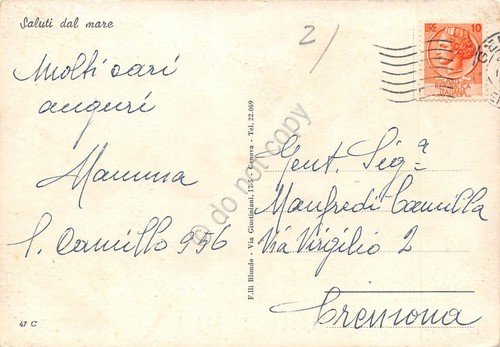 Saluti dal mare
2/
Molti cari
auguri
Mamma
S. Camillo 956
47 C
F.lli Biondo - Via Giustiniani, 12-5 - Genova - Tel. 22.069
LIRE 10
REPUBBLICA
ITALIANA
Gent. Sigª
Manfredi Camilla
Via Virgilio 2
Cremona
© do not copy